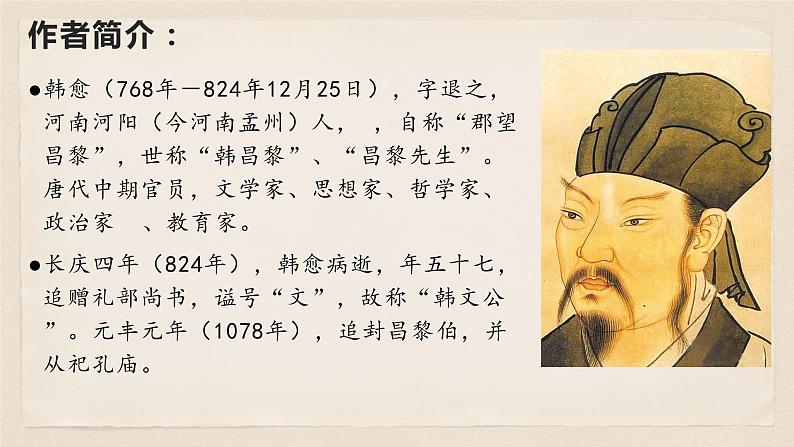 作者简介：
●韩愈（768年－824年12月25日），字退之，
河南河阳（今河南孟州）人， ，自称“郡望
昌黎”，世称“韩昌黎”、“昌黎先生”。
唐代中期官员，文学家、思想家、哲学家、
政治家 、教育家。
●长庆四年（824年），韩愈病逝，年五十七，
追赠礼部尚书，谥号“文”，故称“韩文公
”。元丰元年（1078年），追封昌黎伯，并
从祀孔庙。